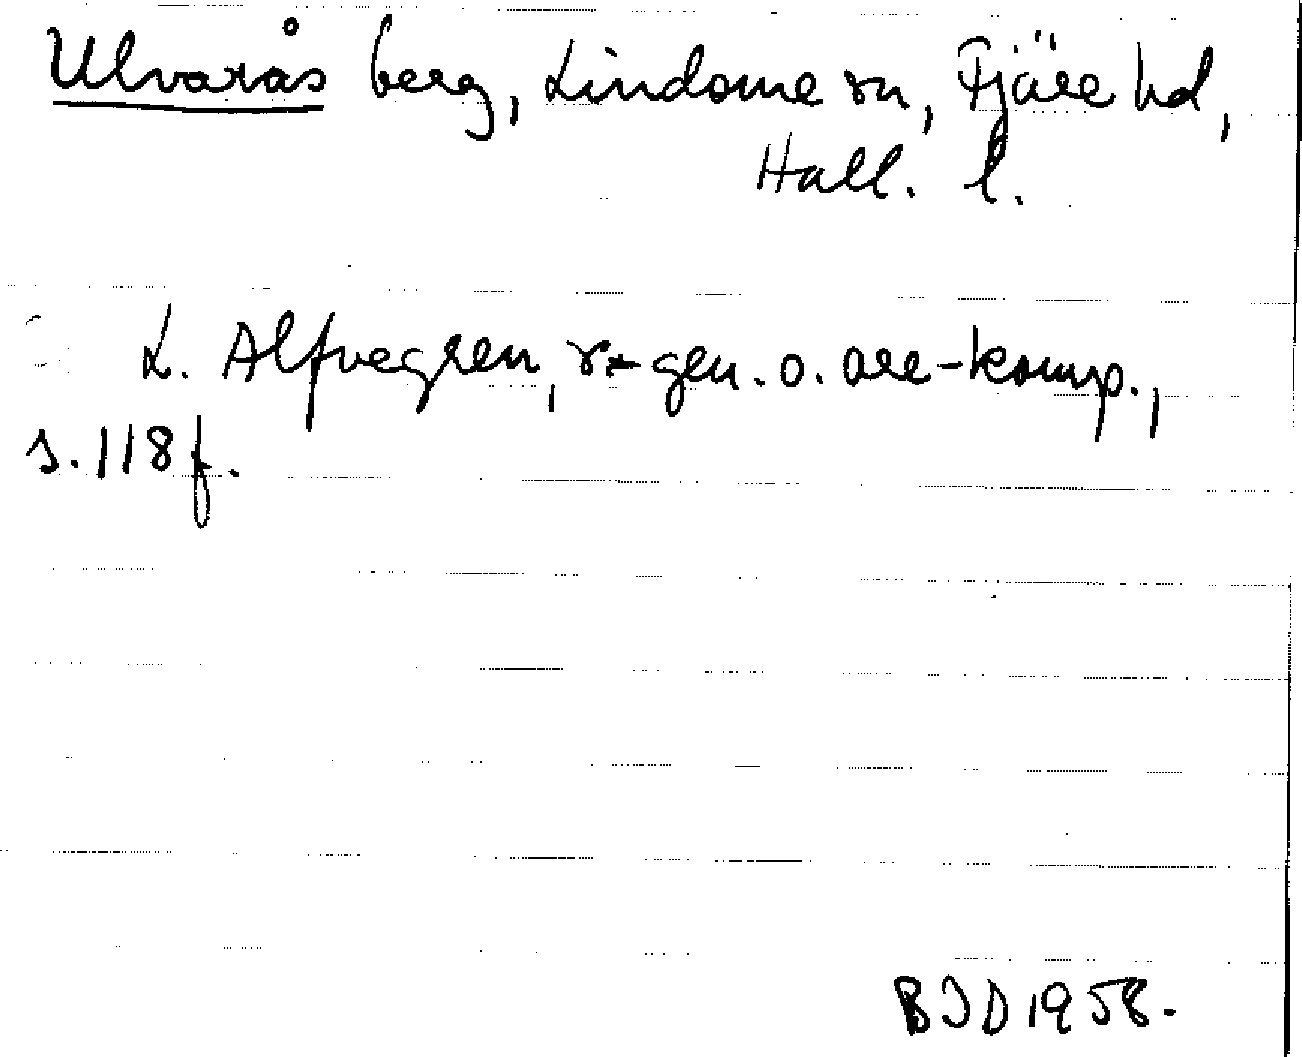 Ulvarås berg, Lindome sn, Fjäre hd,
Hall. l.
L. Alfvegren, r-gen. o. are-komp.,
s. 118 f.
BJD 1958.